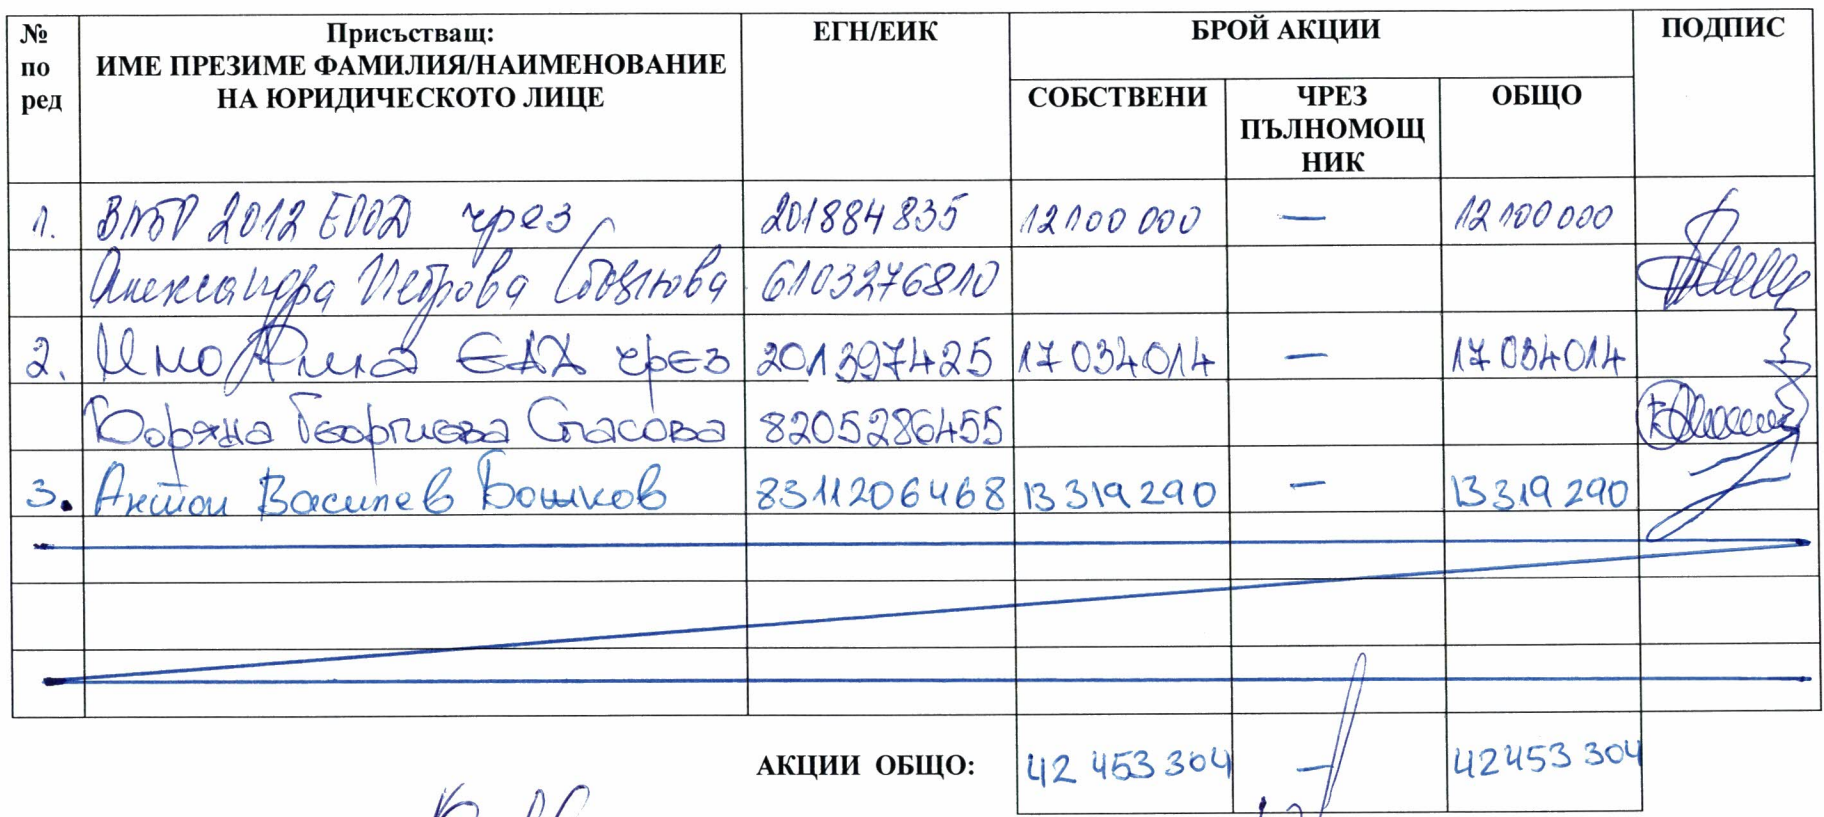 № по ред
Присъстващ: ИМЕ ПРЕЗИМЕ ФАМИЛИЯ/НАИМЕНОВАНИЕ НА ЮРИДИЧЕСКОТО ЛИЦЕ
ЕГН/ЕИК
БРОЙ АКЦИИ
ПОДПИС
СОБСТВЕНИ
ЧРЕЗ ПЪЛНОМОЩ НИК
ОБЩО
1. 2012 ЕООД чрез 201884835 12 100 000 — 12 100 000
Александра Петрова 6103276810
2. ЕАД чрез 201397425 17 034 014 — 17 034 014
Боряна Георгиева Спасова 8205286455
3. Антон Василев Бошков 8311206468 13 319 290 — 13 319 290
АКЦИИ ОБЩО: 42 453 304 — 42 453 304